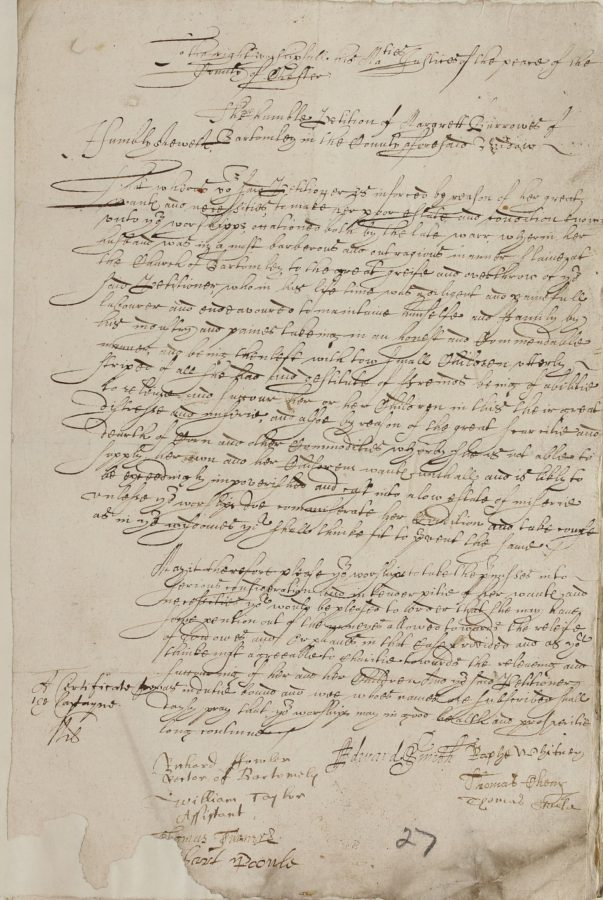 To the right worshipfull his Maties Justices of the peace of the
County of Chester
The humble Petition of Margrett Burrowes of
Bartomley in the County aforesaid Widow
Humbly sheweth
That whereas yor said Petitioner is inforced by reason of her great
wants and necessities to make her poor estate and condition knowne
unto yor worshipps occationed both by the late warr wherin her
husband was in a most barberous and outragious manner slaine at
the Church of Bartomley to the great greife and overthrow of yor
said Petitioner, who in his life time was diligent and painfully
laboured and endevoured to maintaine himselfe and Family by
his industry and paines takeing in an honest and Commendable
manner, and being then left with tow small Children utterly
striped of all she had and destitute of freinds being of abilitie
to releive and succour her or her Children in this their great
distresse and miserie, and alsoe by reason of the great scarcitie and
dearth of Corn and other Commodities wherby she is not able to
supply her own and her Childrens wants withall and is likly to
be exceedingly impoverished and cast into a low estate of miserie
unlesse yor worships doe comiserate her Condition and take course
as in yor wisdomes yow shall thinke fit to prvent the same
May it therefore please yor worships to take the prmisses into
serious consideration and in tender pitie of her wants and
necessities yow would be pleased to order that she may have
some pention out of the moneys allowed towards the releife
of widowes and Orphants in that Case provided and as yow
shall agreeable to charitie towards the releiveing and
of her and her Children And yor said Petitioner
as in dutie bound and wee whose names are subscribed shall
dayly pray that yor worships may in good health and prosperitie
long continue
A Certificate
Richard Fowler
Rector of Bartomely
William Taylor
Assistant
Thomas Turner
Poole
Edward Smith
Raphe Whitney
Thomas Cheny
Thomas
27